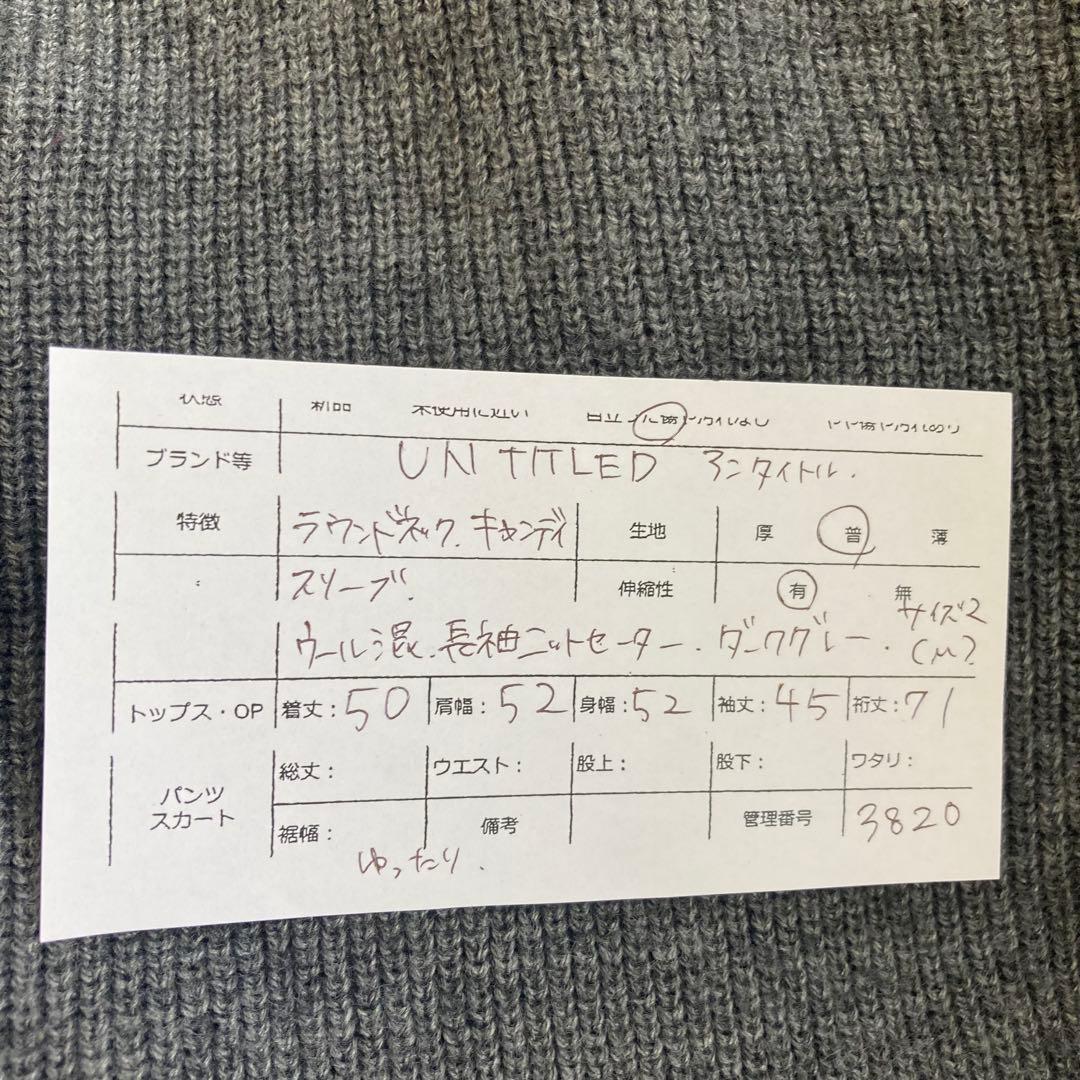 状態 新品 未使用に近い 目立った傷や汚れなし やや傷や汚れあり
ブランド等 UNTITLED アンタイトル.
特徴 ラウンドネック. キャンディ 生地 厚 普 薄
スリーブ. 伸縮性 有 無
ウール混. 長袖ニットセーター. ダークグレー. サイズ2
(M)
トップス・OP 着丈:50 肩幅:52 身幅:52 袖丈:45 裄丈:71
パンツ スカート 総丈: ウエスト: 股上: 股下: ワタリ:
裾幅: 備考 管理番号 3820
ゆったり.